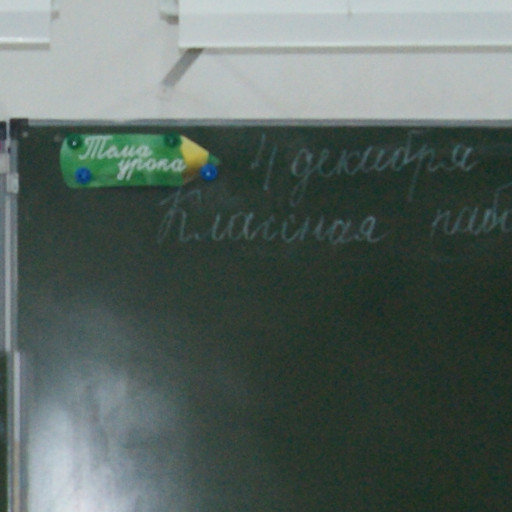 Тема
урока
4 декабря
Классная рабо